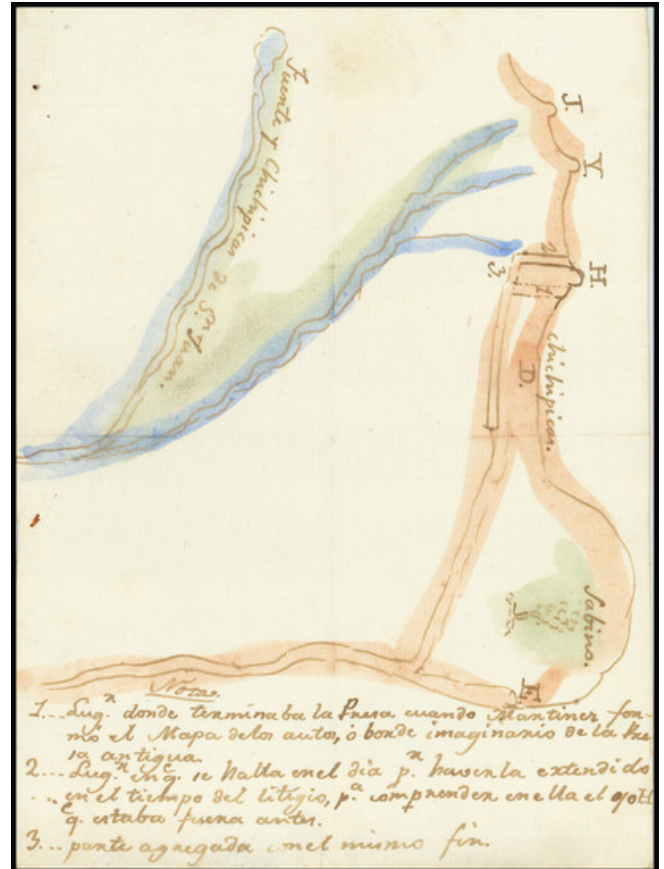 Fuente y Chichipicas de Sn. Juan.
J.
Y.
H.
2
3.
1
Chichipicas.
D.
Sabino.
E.
Notas.
1... Lug.n donde terminaba la Presa cuando Martinez for-
mó el Mapa delos autos, ó borde imaginario de la Pre
sa antigua.
2... Lug.n en q.e se halla enel dia p.r haverla extendido
... en el tiempo del litigio, p.a comprender en ella el ojo H
q.e estaba fuera antes.
3... parte agregada con el mismo fin.